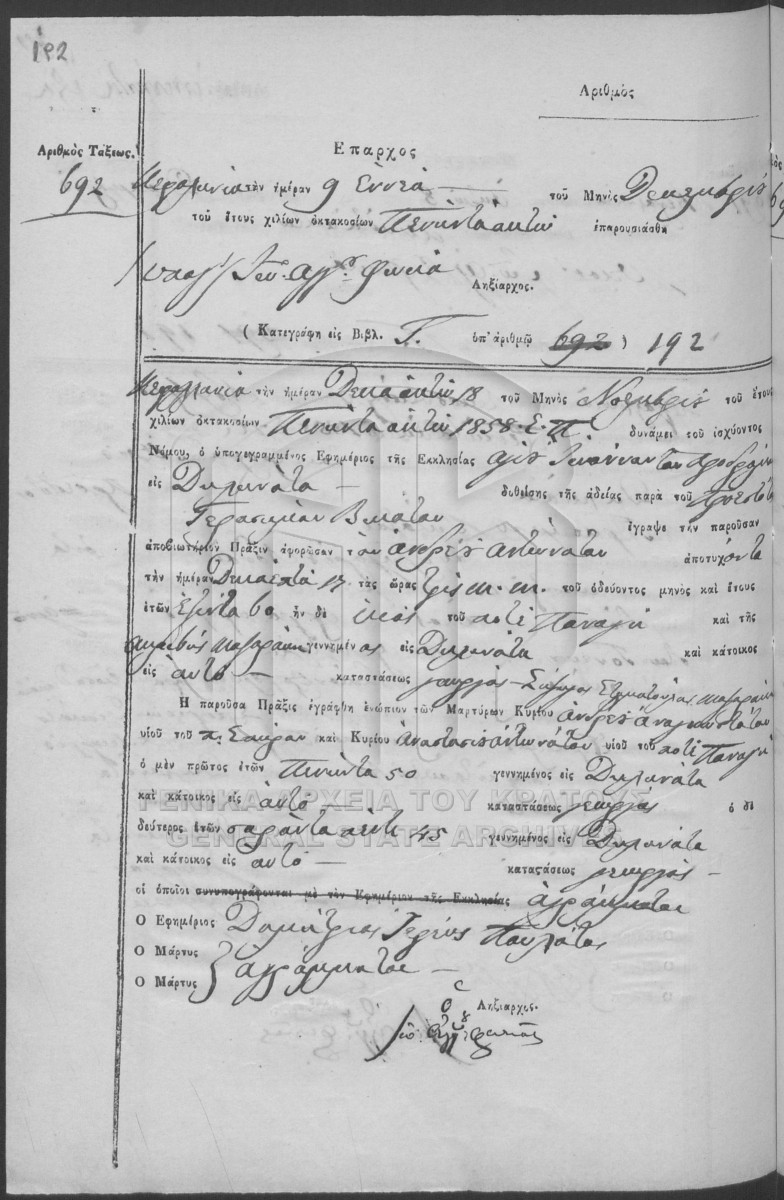 192
Αριθμὸς
Επαρχος
Αριθμὸς Τάξεως.
692
Κεφαλληνία τὴν ἡμέραν 9 Εννέα τοῦ Μηνὸς Δεκεμβρίου
τοῦ ἔτους χιλίων ὀκτακοσίων Πενήντα οκτώ ἐπαρουσιάσθη
Φωκά Ληξίαρχος.
( Κατεγράφη εἰς Βιβλ. Γ. ὑπ' ἀριθμῷ 692 ) 192
Κεφαλληνία τὴν ἡμέραν Δεκαοκτώ 18 τοῦ Μηνὸς Νοεμβρίου τοῦ ἔτους
χιλίων ὀκτακοσίων Πενήντα οκτώ 1858. Ε. Π. δυνάμει τοῦ ἰσχύοντος
Νόμου, ὁ ὑπογεγραμμένος Ἐφημέριος τῆς Ἐκκλησίας αγίου Ιωάννου του προδρόμου
εἰς Διλινάτα δοθείσης τῆς ἀδείας παρὰ τοῦ Προεστού
Γερασίμου ἔγραψε τὴν παροῦσαν
ἀποβιωτήριον Πρᾶξιν ἀφορῶσαν τον ανδρέα αντωνάτον ἀποτυχόντα
τὴν ἡμέραν Δεκαεπτά 17 τὰς ὥρας τρις μ. μ. τοῦ ὁδεύοντος μηνὸς καὶ ἔτους
ἐτῶν εξήντα 60 ἦν δὲ υιός τοῦ ποτέ Παναγή καὶ τῆς
γεννημένος εἰς Διλινάτα καὶ κάτοικος
εἰς αυτό καταστάσεως γεωργός - Σύζυγος Σταματούλας
Ἡ παροῦσα Πρᾶξις ἐγράφθη ἐνώπιον τῶν Μαρτύρων Κυρίου ανδρέου αναγνωστάτου
υἱοῦ τοῦ π. Σπύρου καὶ Κυρίου αναστασίου αντωνάτου υἱοῦ τοῦ ποτέ Παναγή
ὁ μὲν πρῶτος ἐτῶν Πενήντα 50 γεννημένος εἰς Διλινάτα
καὶ κάτοικος εἰς αυτό καταστάσεως γεωργός ὁ δὲ
δεύτερος ἐτῶν σαράντα πέντε 45 γεννημένος εἰς Διλινάτα
καὶ κάτοικος εἰς αυτό καταστάσεως γεωργός
οἱ ὁποῖοι συνυπογράφονται μὲ τὸν Ἐφημέριον τῆς Ἐκκλησίας αγράμματοι
Ο Ἐφημέριος Δημήτριος Ιερεύς Παυλάτος
Ο Μάρτυς
Ο Μάρτυς } αγράμματοι
Ὁ Ληξίαρχος.
ΓΕΝΙΚΑ ΑΡΧΕΙΑ ΤΟΥ ΚΡΑΤΟΥΣ
GENERAL STATE ARCHIVES